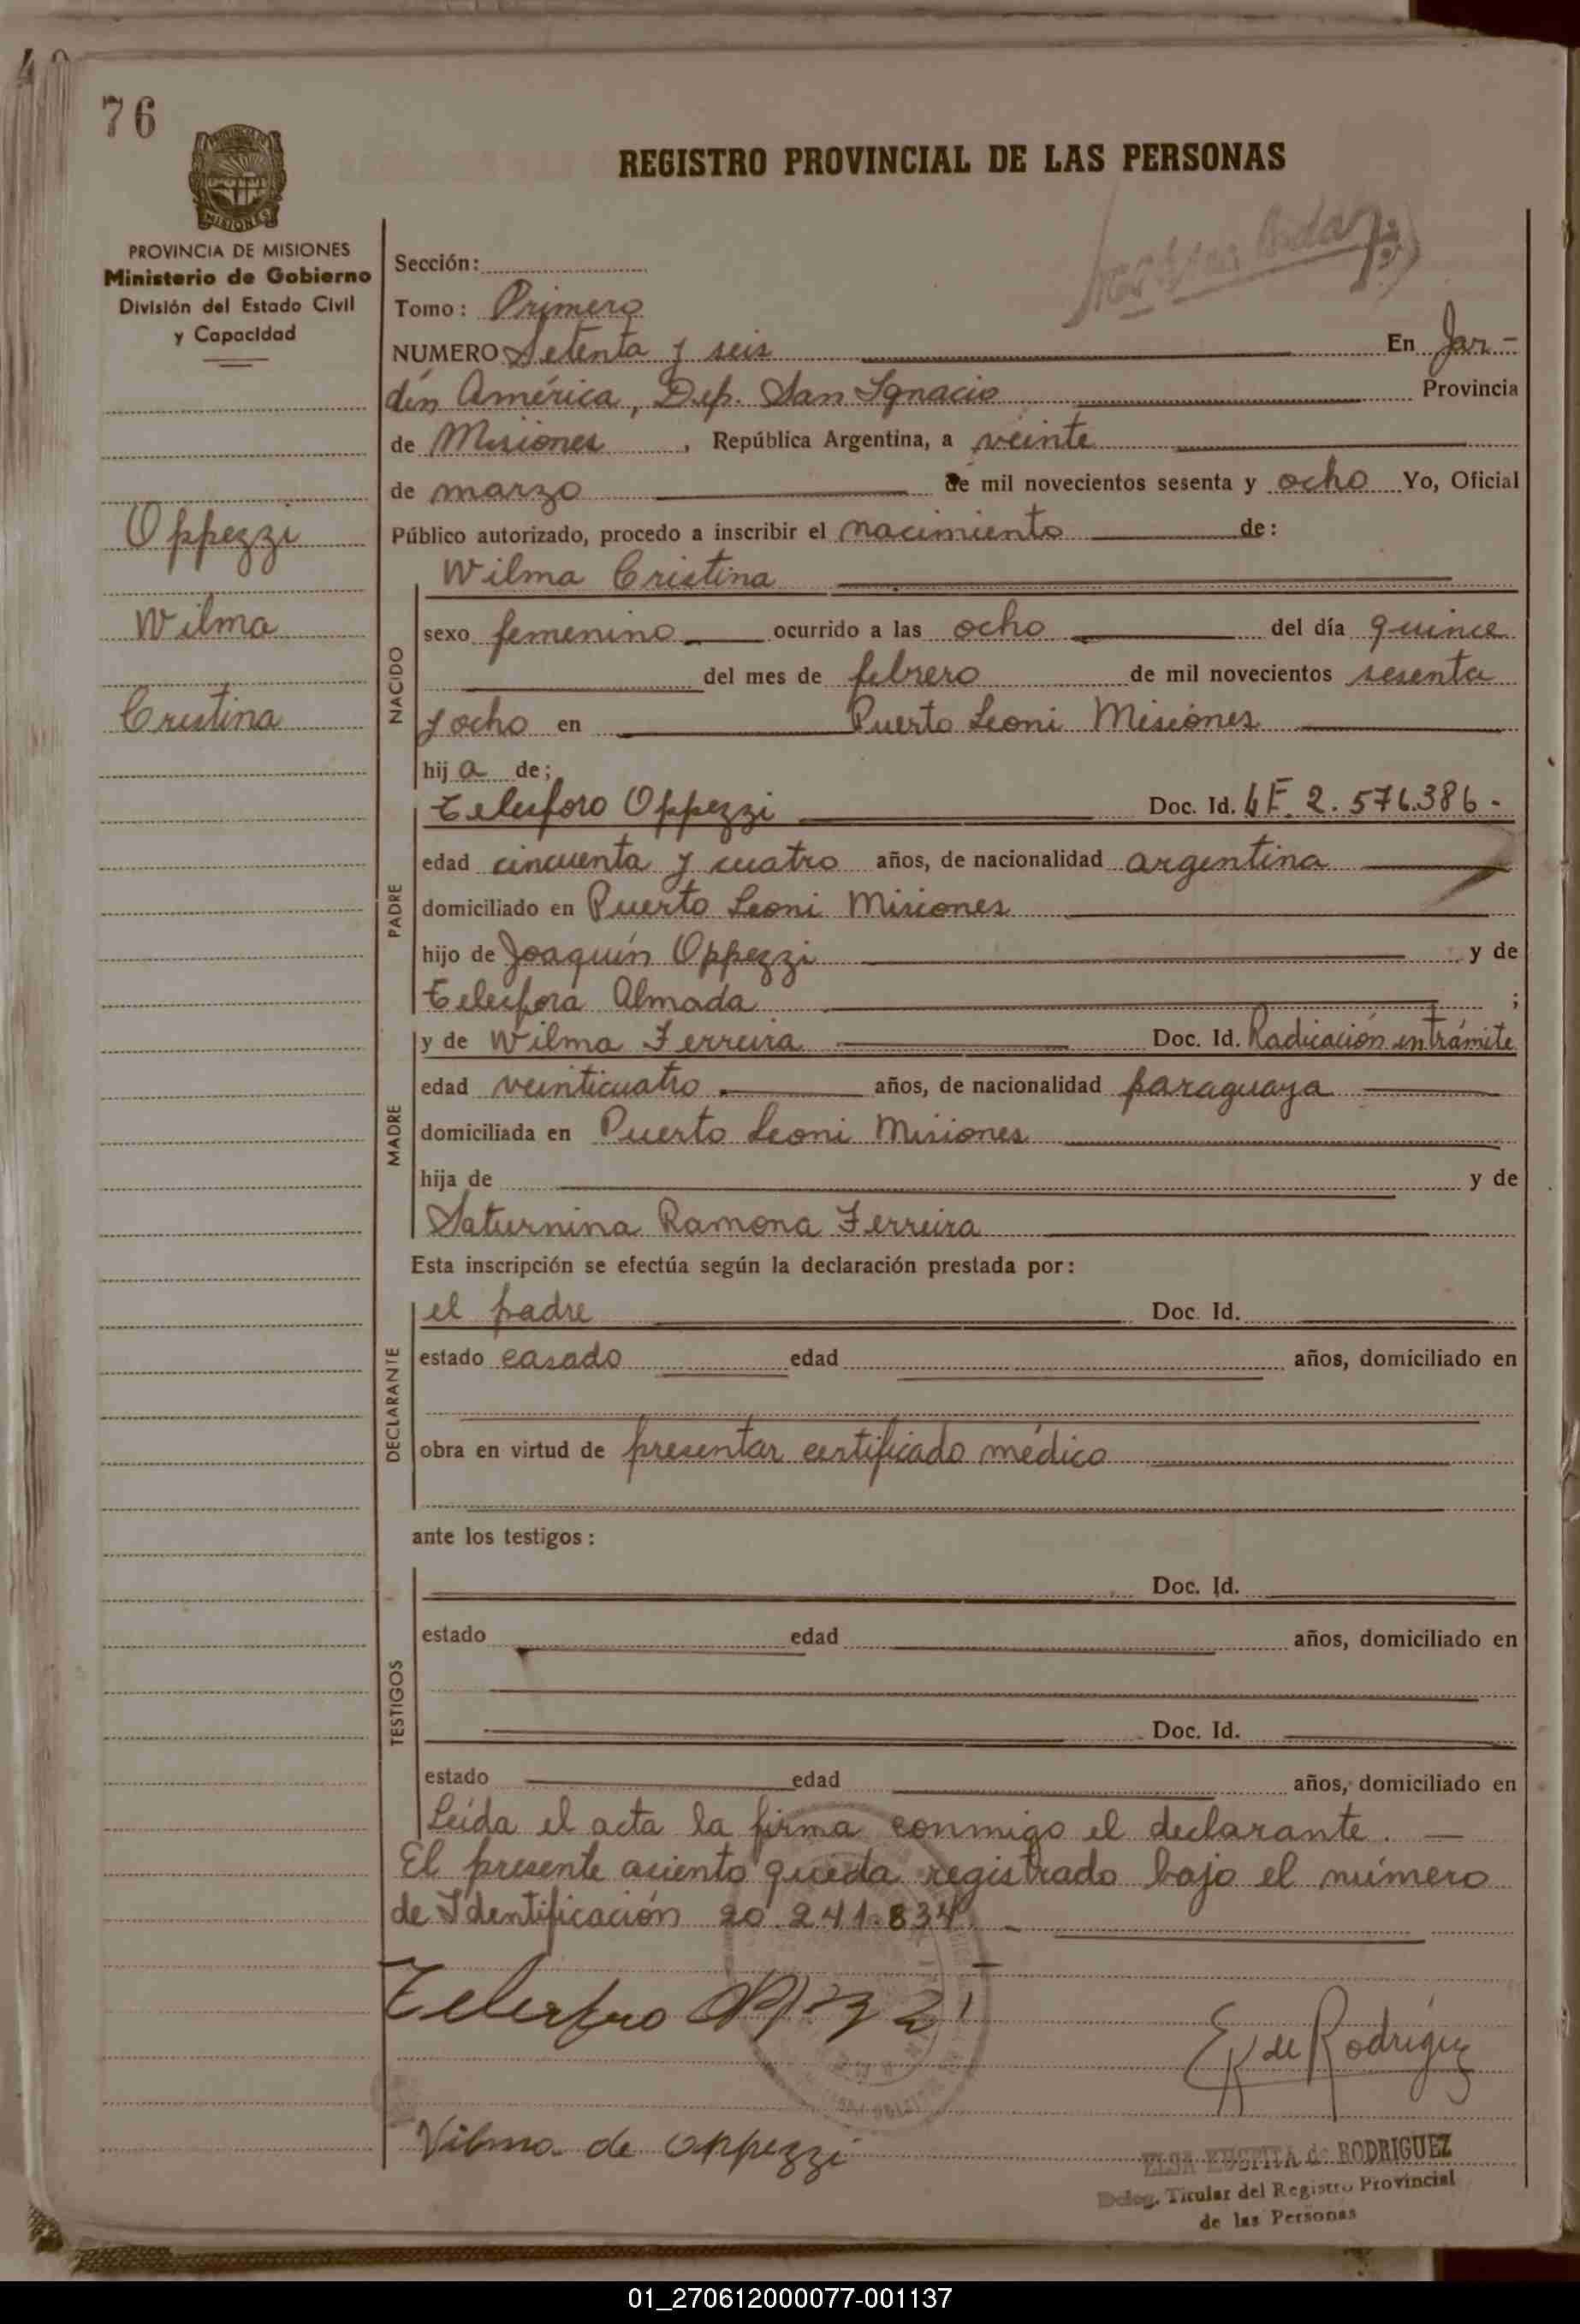 76
REGISTRO PROVINCIAL DE LAS PERSONAS
MISIONES
PROVINCIA DE MISIONES
Ministerio de Gobierno
División del Estado Civil
y Capacidad
Oppezzi
Wilma
Cristina
Sección:
Tomo: Primero
NUMERO Setenta y seis En Jar-
dín América, Dep. San Ignacio Provincia
de Misiones, República Argentina, a veinte
de marzo de mil novecientos sesenta y ocho Yo, Oficial
Público autorizado, procedo a inscribir el nacimiento de:
Wilma Cristina
NACIDO
sexo femenino ocurrido a las ocho del día quince
del mes de febrero de mil novecientos sesenta
y ocho en Puerto Leoni Misiones
hija de;
PADRE
Telesforo Oppezzi Doc. Id. LE. 2.576.386.-
edad cincuenta y cuatro años, de nacionalidad argentina
domiciliado en Puerto Leoni Misiones
hijo de Joaquín Oppezzi y de
Telesfora Almada ;
MADRE
y de Wilma Ferreira Doc. Id. Radicación en trámite
edad veinticuatro años, de nacionalidad paraguaya
domiciliada en Puerto Leoni Misiones
hija de y de
Saturnina Ramona Ferreira
Esta inscripción se efectúa según la declaración prestada por:
DECLARANTE
el padre Doc. Id.
estado casado edad años, domiciliado en
obra en virtud de presentar certificado médico
ante los testigos:
TESTIGOS
Doc. Id.
estado edad años, domiciliado en
Doc. Id.
estado edad años, domiciliado en
Leída el acta la firma conmigo el declarante. —
El presente asiento queda registrado bajo el número
de Identificación 20.241.834. -
Telesforo Oppezzi
E K de Rodríguez
Vilma de oppezzi
ELSA de RODRIGUEZ
Deleg. Titular del Registro Provincial
de las Personas
01_270612000077-001137